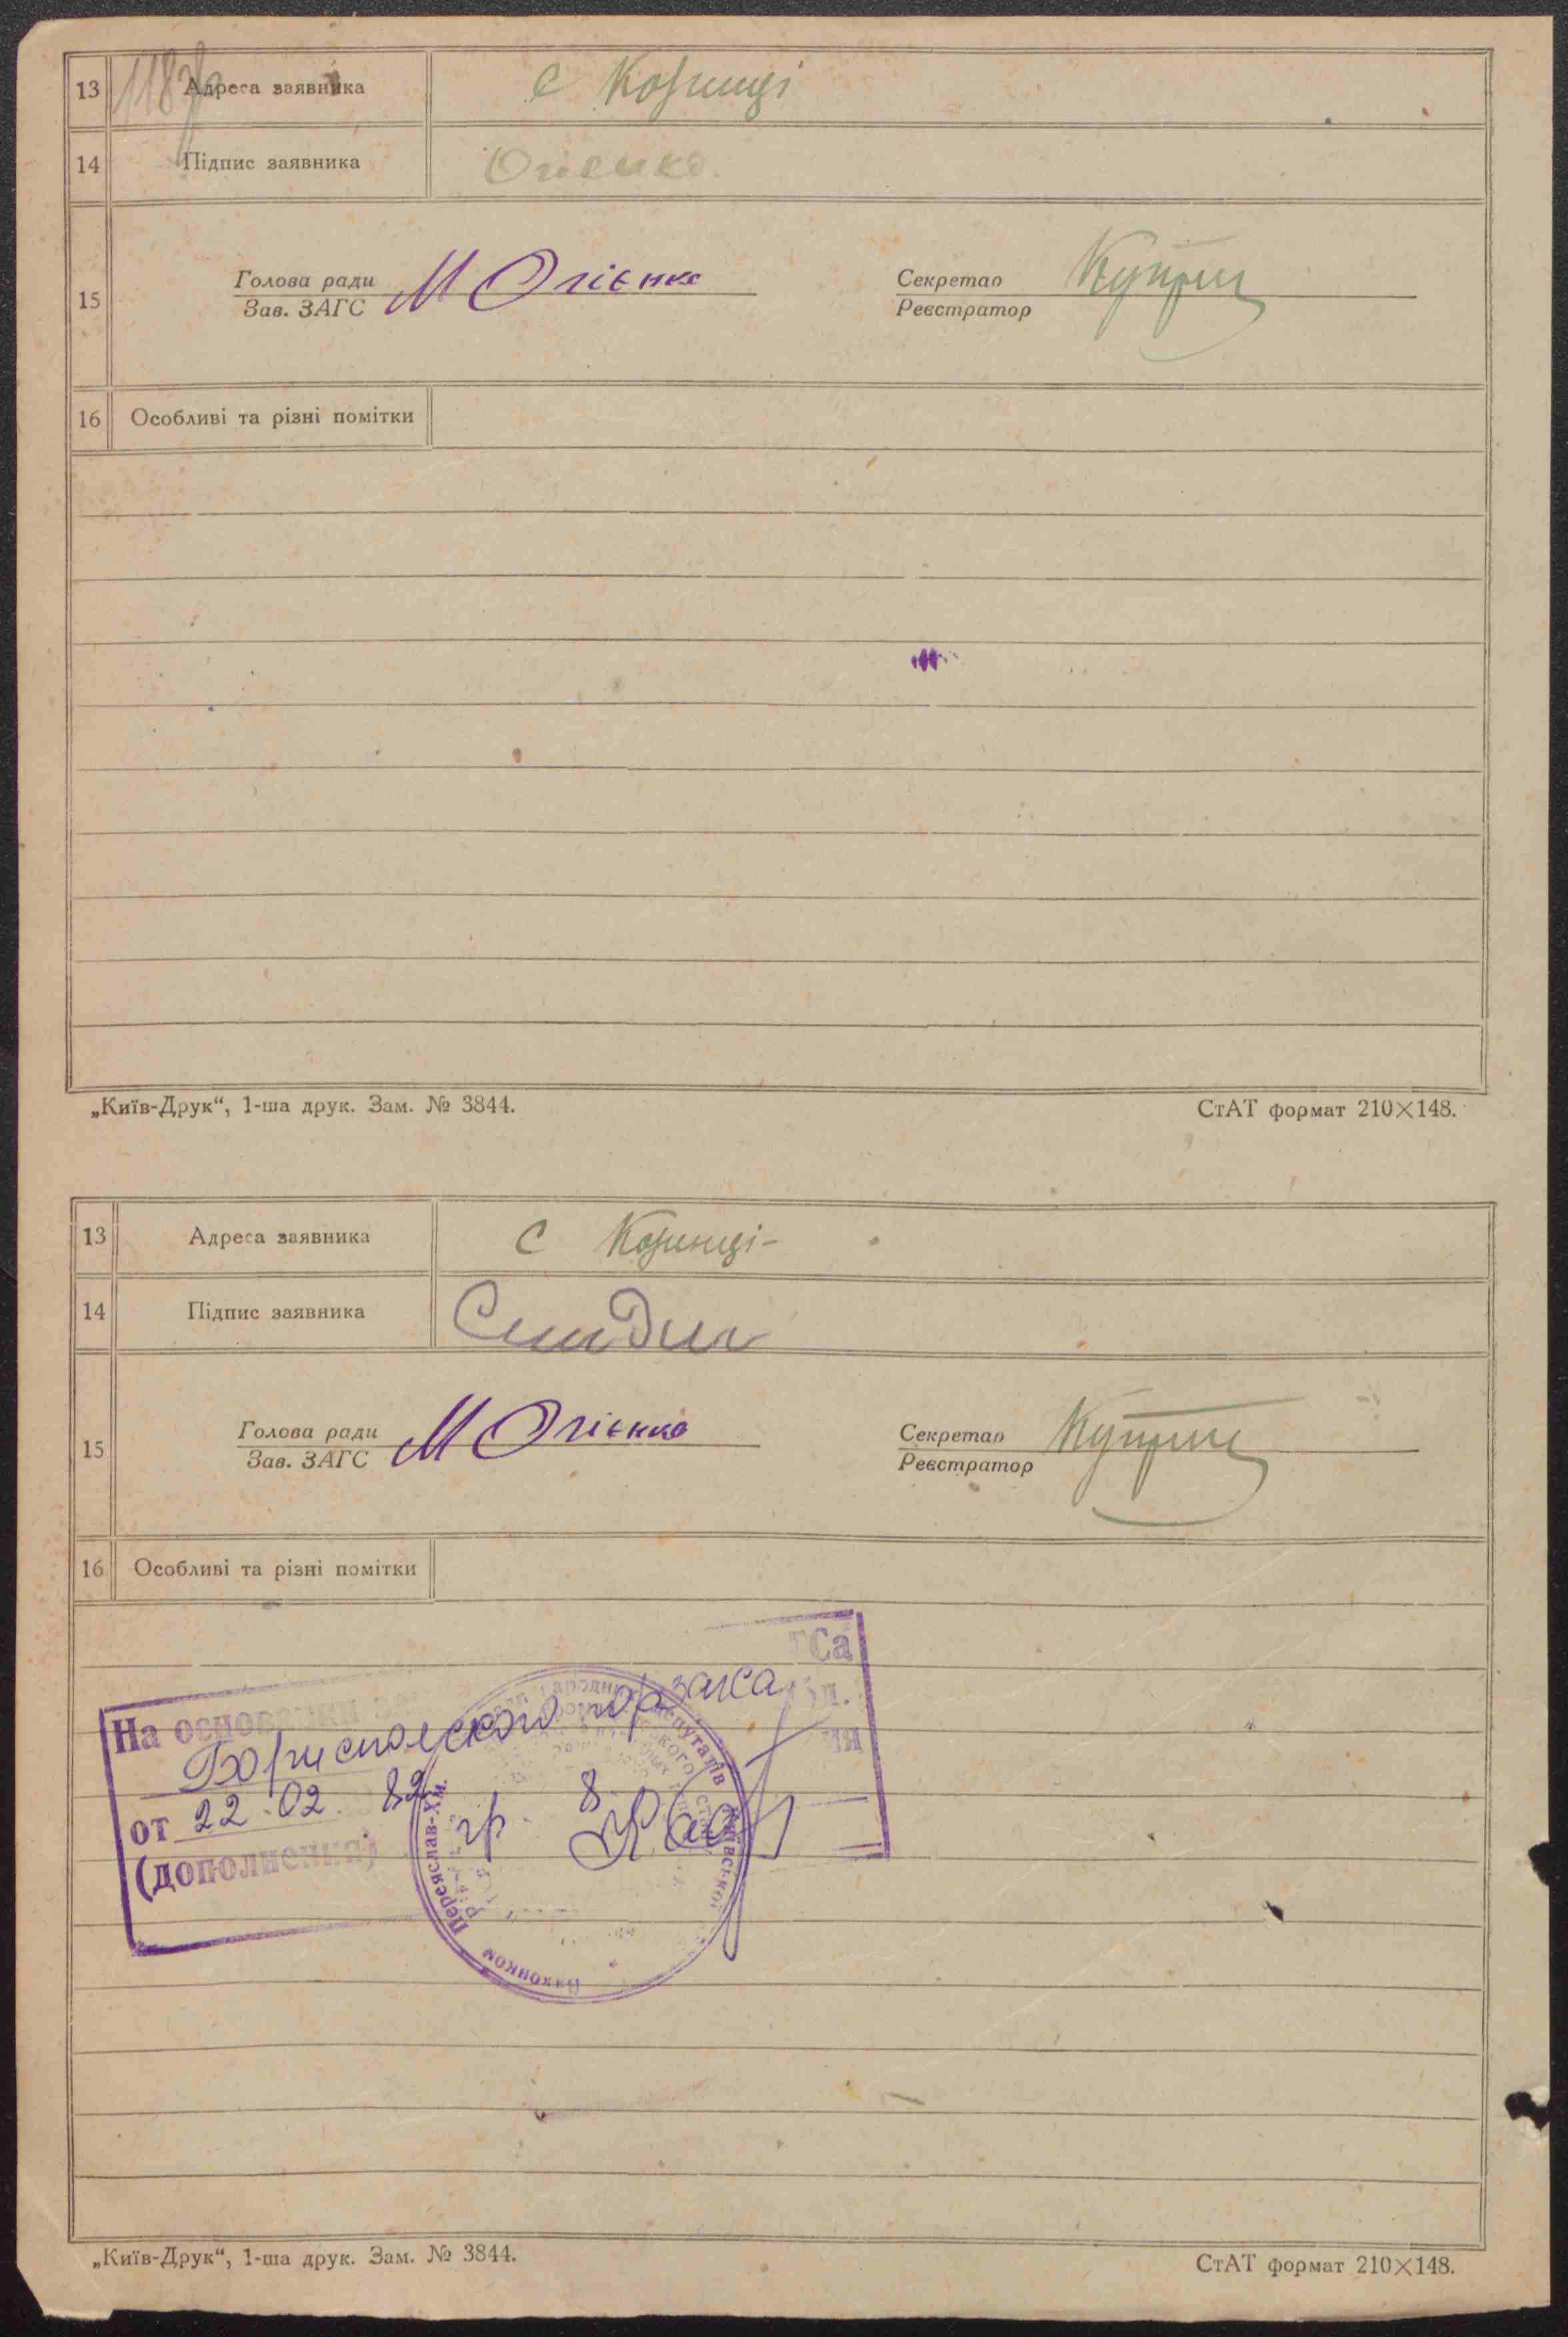 13 Адреса заявника с Козинці
14 Підпис заявника Огієнко
Голова ради М Огієнко Секретар
15 Зав. ЗАГС Реєстратор
16 Особливі та різні помітки
„Київ-Друк“, 1-ша друк. Зам. № 3844. СтАТ формат 210×148.
13 Адреса заявника с Козинці
14 Підпис заявника
Голова ради М Огієнко Секретар
15 Зав. ЗАГС Реєстратор
16 Особливі та різні помітки
На основании
Бориспольского горзагса
от 22.02. 82 гр. 8
(дополнения)
Переяслав-Хм.
„Київ-Друк“, 1-ша друк. Зам. № 3844. СтАТ формат 210×148.